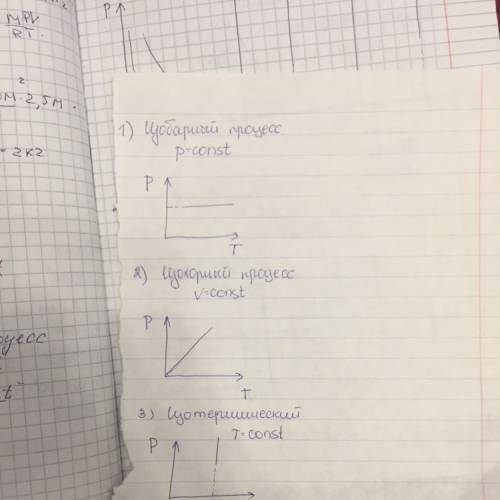 P
MPV
RT.
2
М · 2,5м.
2кг
1) Изобарный процесс
p=const
P
T
2) Изохорный процесс
V=const
P
T
3) Изотермический
T=const
P